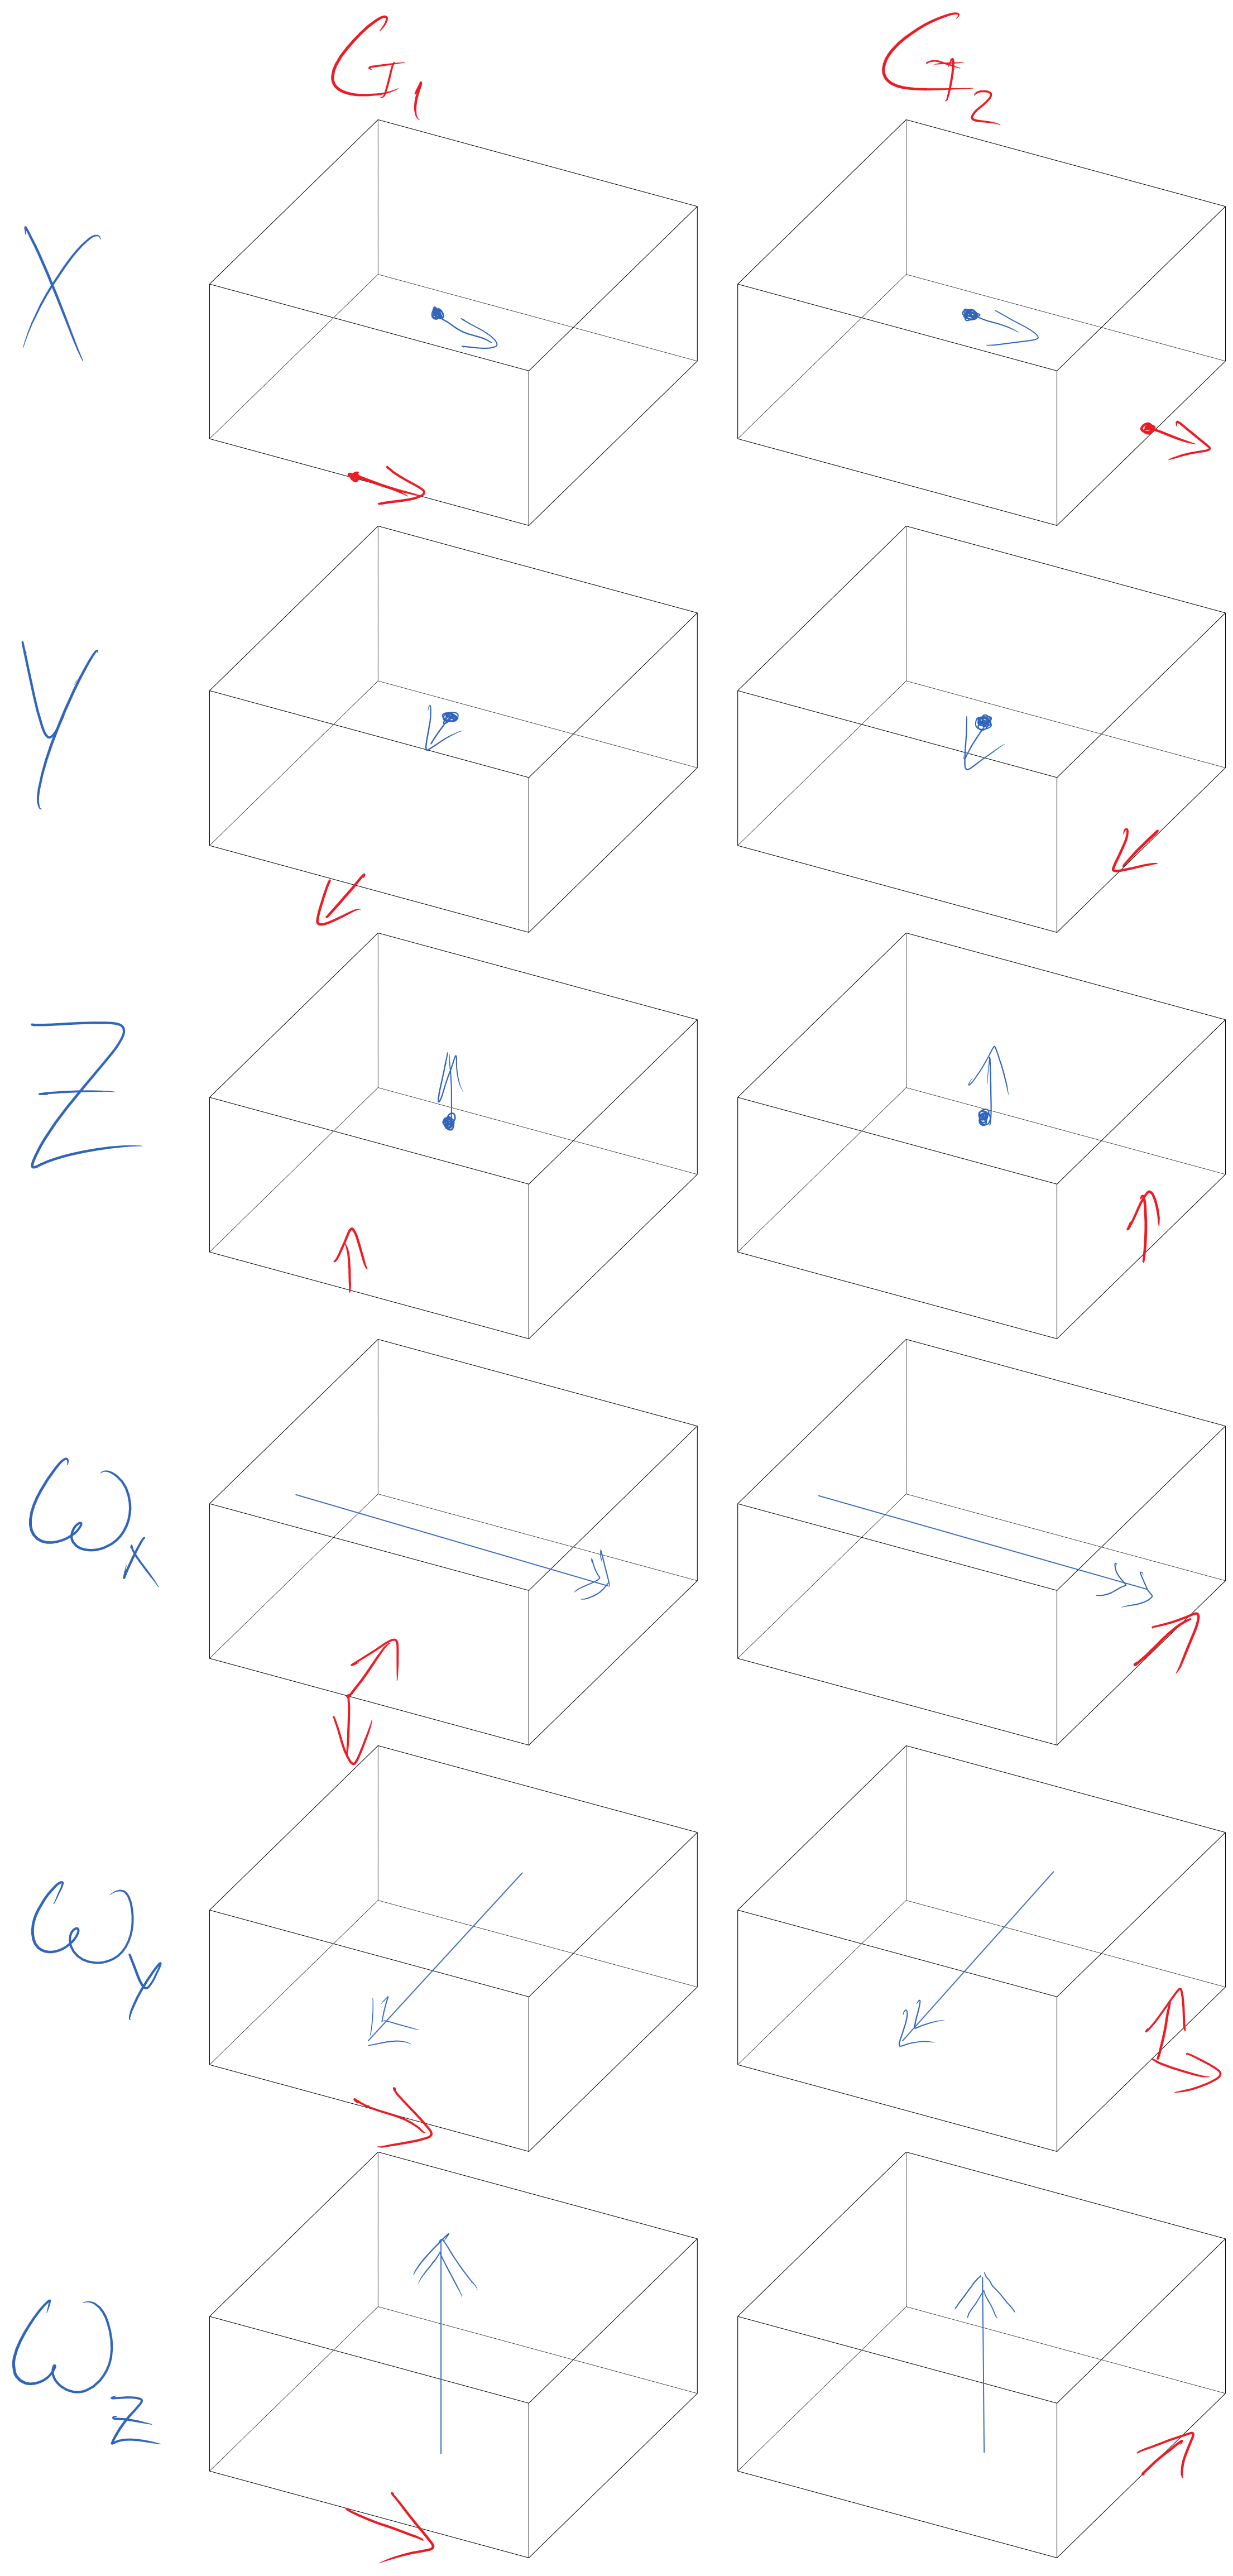 G₁ G₂
X
Y
Z
ωₓ
ω_Y
ω_Z